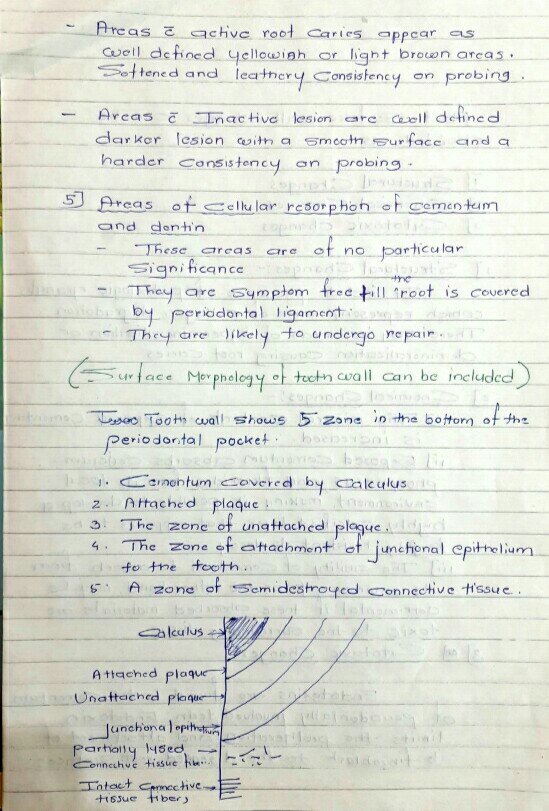 - Areas c̄ active root caries appear as
well defined yellowish or light brown areas.
Softened and leathery consistency on probing.
- Areas c̄ Inactive lesion are well defined
darker lesion with a smooth surface and a
harder consistency on probing.
5] Areas of cellular resorption of cementum
and dentin
- These areas are of no particular
significance
- They are symptom free till the root is covered
by periodontal ligament.
- They are likely to undergo repair.
(Surface Morphology of tooth wall can be included)
Tooth wall shows 5 zone in the bottom of the
periodontal pocket.
1. Cementum covered by calculus
2. Attached plaque.
3. The zone of unattached plaque.
4. The zone of attachment of junctional epithelium
to the tooth.
5. A zone of semidestroyed connective tissue.
Calculus
Attached plaque
Unattached plaque
Junctional epithelium
Partially lysed
Connective tissue fiber
Intact connective
tissue fibers